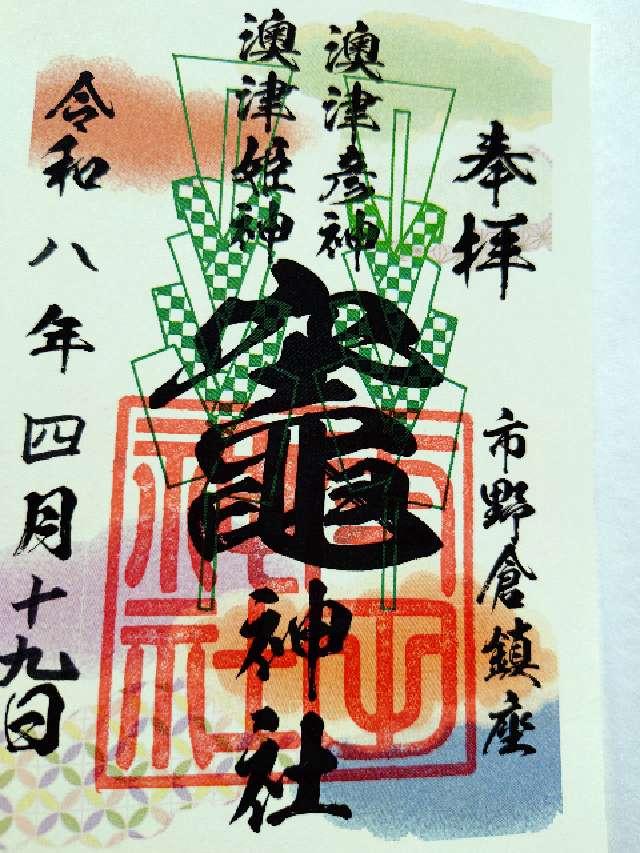 奉拝
市野倉鎮座
澳津彦神
澳津姫神
竈神社
令和八年四月十九日